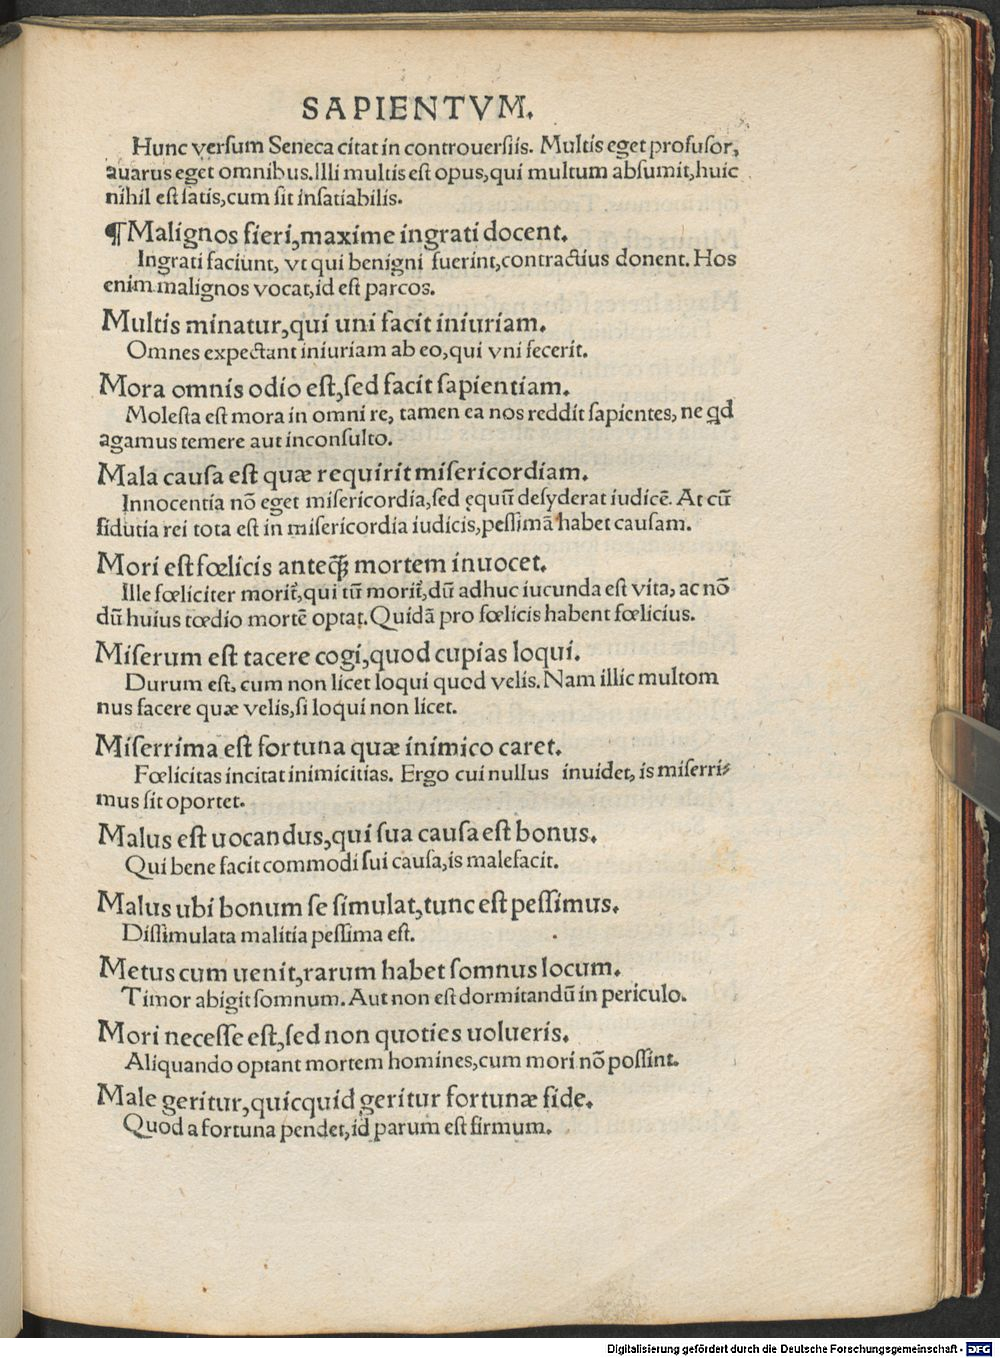 SAPIENTVM.
Hunc verſum Seneca citat in controuerſiis. Multis eget profuſor,
auarus eget omnibus. Illi multis eſt opus, qui multum abſumit, huic
nihil eſt ſatis, cum ſit inſatiabilis.
¶Malignos fieri, maxime ingrati docent.
Ingrati faciunt, vt qui benigni fuerint, contractius donent. Hos
enim malignos vocat, id eſt parcos.
Multis minatur, qui uni facit iniuriam.
Omnes expectant iniuriam ab eo, qui vni fecerit.
Mora omnis odio eſt, ſed facit ſapientiam.
Moleſta eſt mora in omni re, tamen ea nos reddit ſapientes, ne qd
agamus temere aut inconſulto.
Mala cauſa eſt quæ requirit miſericordiam.
Innocentia nõ eget miſericordia, ſed ęquũ deſyderat iudicẽ. At cũ
fidutia rei tota eſt in miſericordia iudicis, peſſimã habet cauſam.
Mori eſt fœlicis anteq̃ȝ mortem inuocet.
Ille fœliciter morit̃, qui tũ morit̃, dũ adhuc iucunda eſt vita, ac nõ
dũ huius tœdio mortẽ optat. Quidã pro fœlicis habent fœlicius.
Miſerum eſt tacere cogi, quod cupias loqui.
Durum eſt, cum non licet loqui quod velis. Nam illic multom
nus facere quæ velis, ſi loqui non licet.
Miſerrima eſt fortuna quæ inimico caret.
Fœlicitas incitat inimicitias. Ergo cui nullus inuidet, is miſerri⸗
mus ſit oportet.
Malus eſt uocandus, qui ſua cauſa eſt bonus.
Qui bene facit commodi ſui cauſa, is malefacit.
Malus ubi bonum ſe ſimulat, tunc eſt peſſimus.
Diſſimulata malitia peſſima eſt.
Metus cum uenit, rarum habet ſomnus locum.
Timor abigit ſomnum. Aut non eſt dormitandũ in periculo.
Mori neceſſe eſt, ſed non quoties uolueris.
Aliquando optant mortem homines, cum mori nõ poſſint.
Male geritur, quicquid geritur fortunæ fide.
Quod a fortuna pendet, id parum eſt firmum.
Digitalisierung gefördert durch die Deutsche Forschungsgemeinschaft - DFG